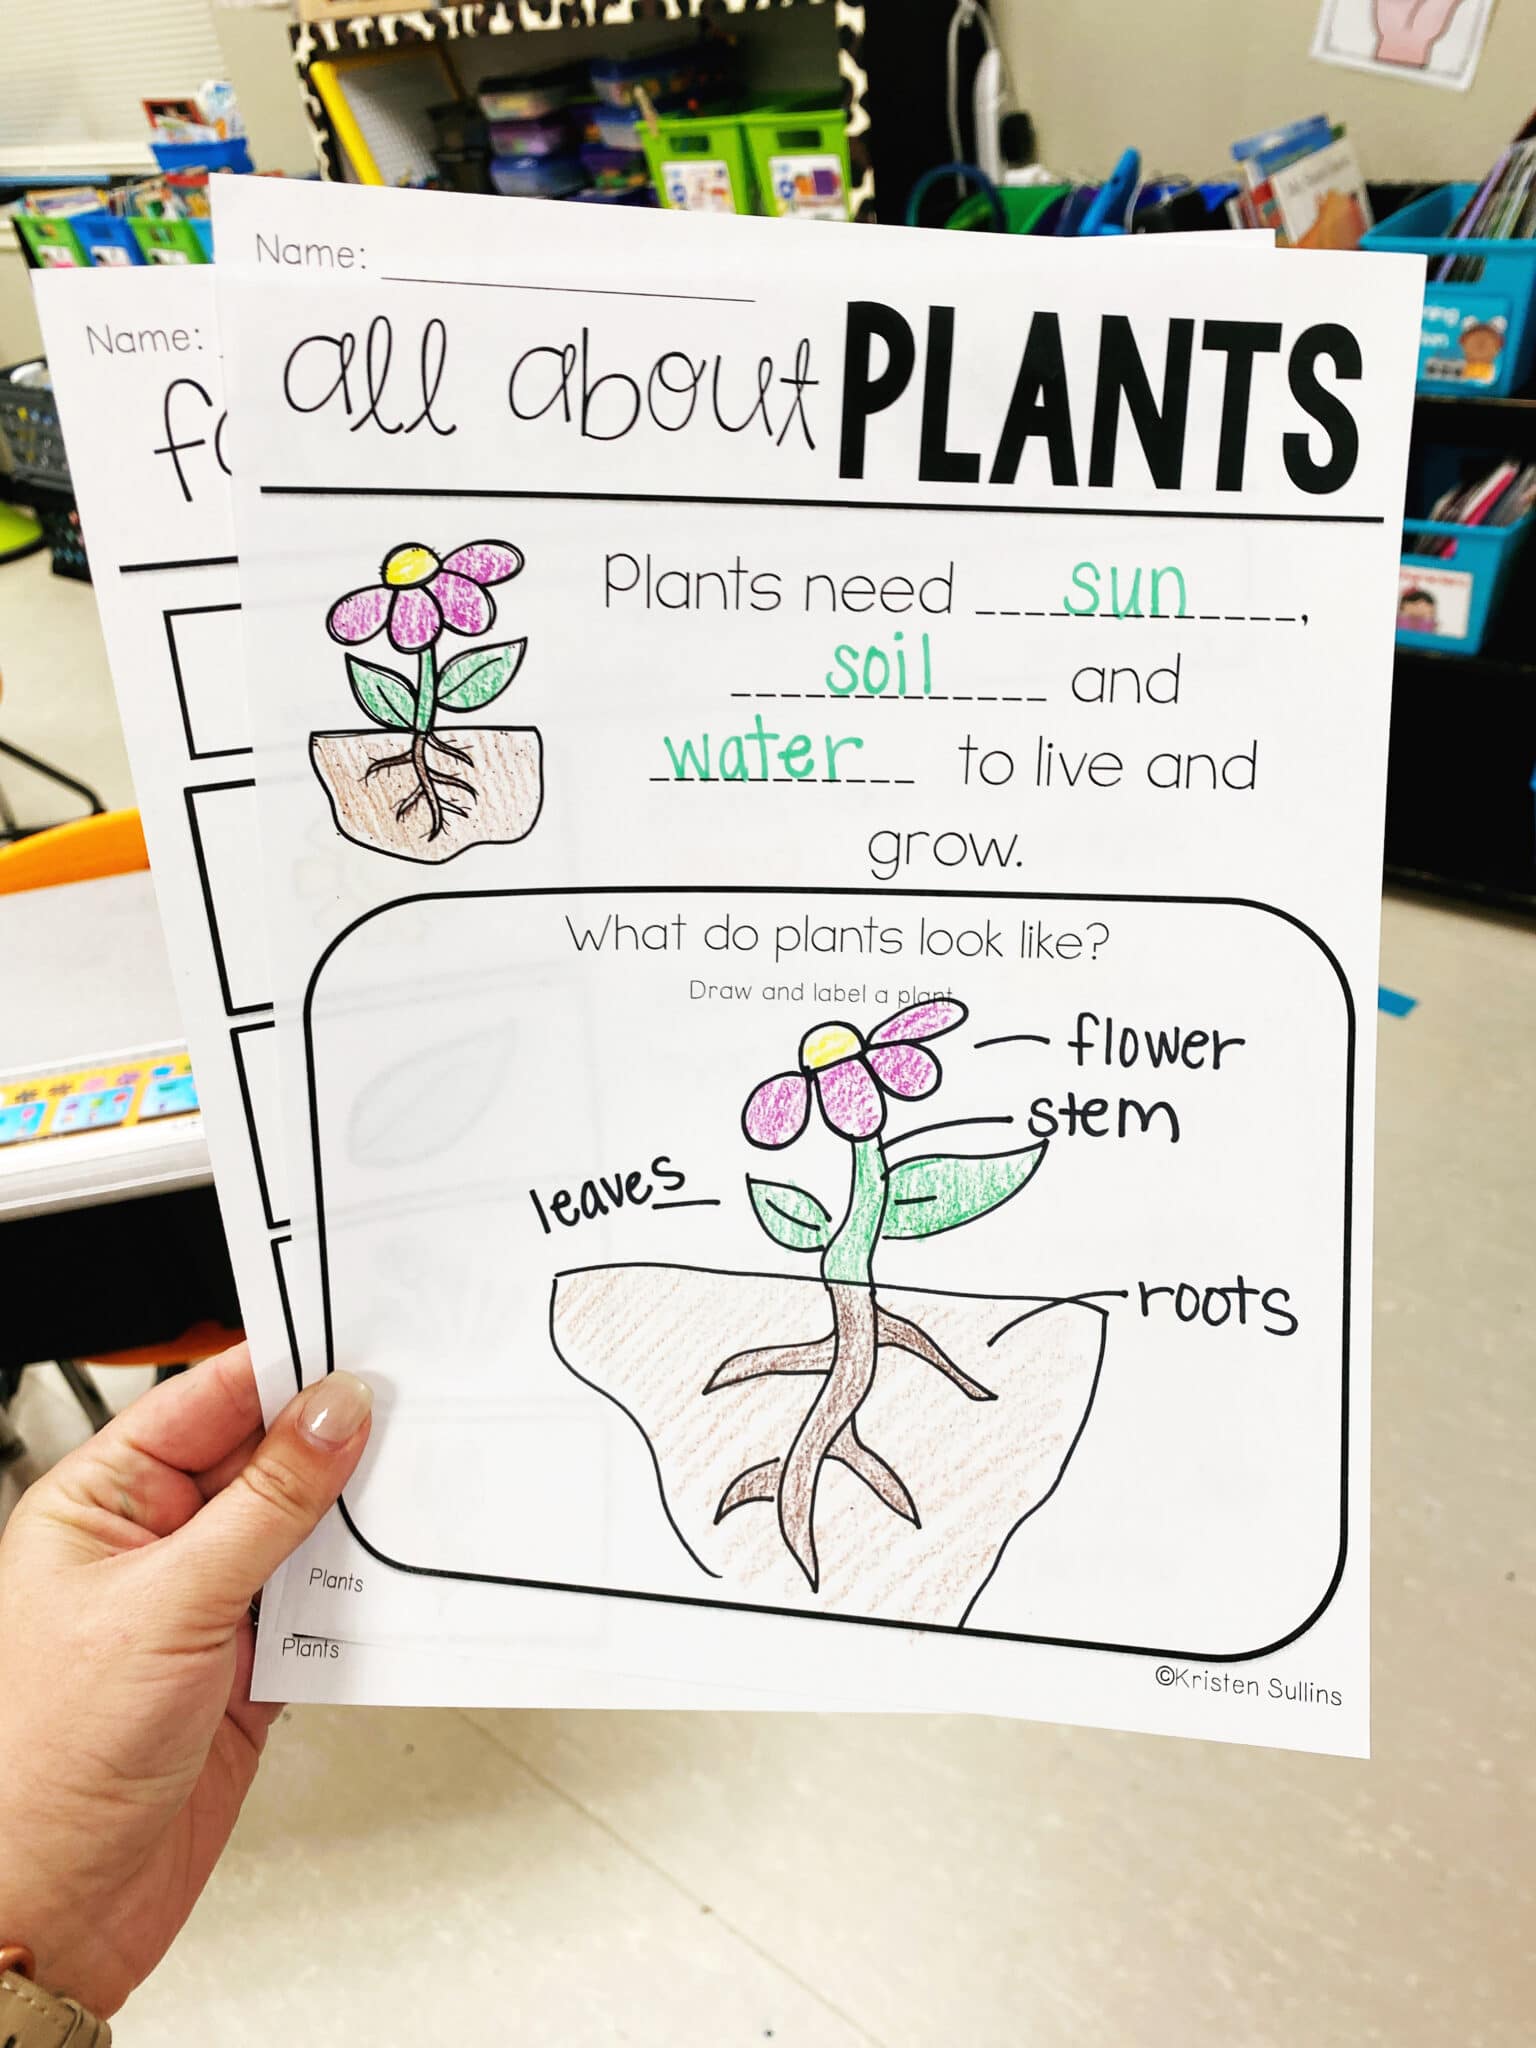 Name:
all about PLANTS
Plants need sun,
soil and
water to live and
grow.
What do plants look like?
Draw and label a plant
flower
stem
leaves
roots
Plants
©Kristen Sullins
Name:
Plants